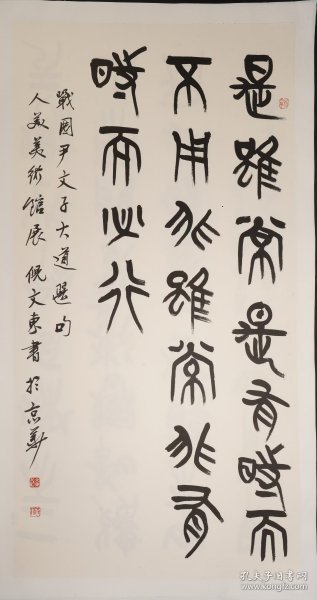 是雖常是有時而
不用非雖常非有
時而必行
戰國尹文子大道選句
人美美術館展 倪文東書於京華
孔夫子旧书网